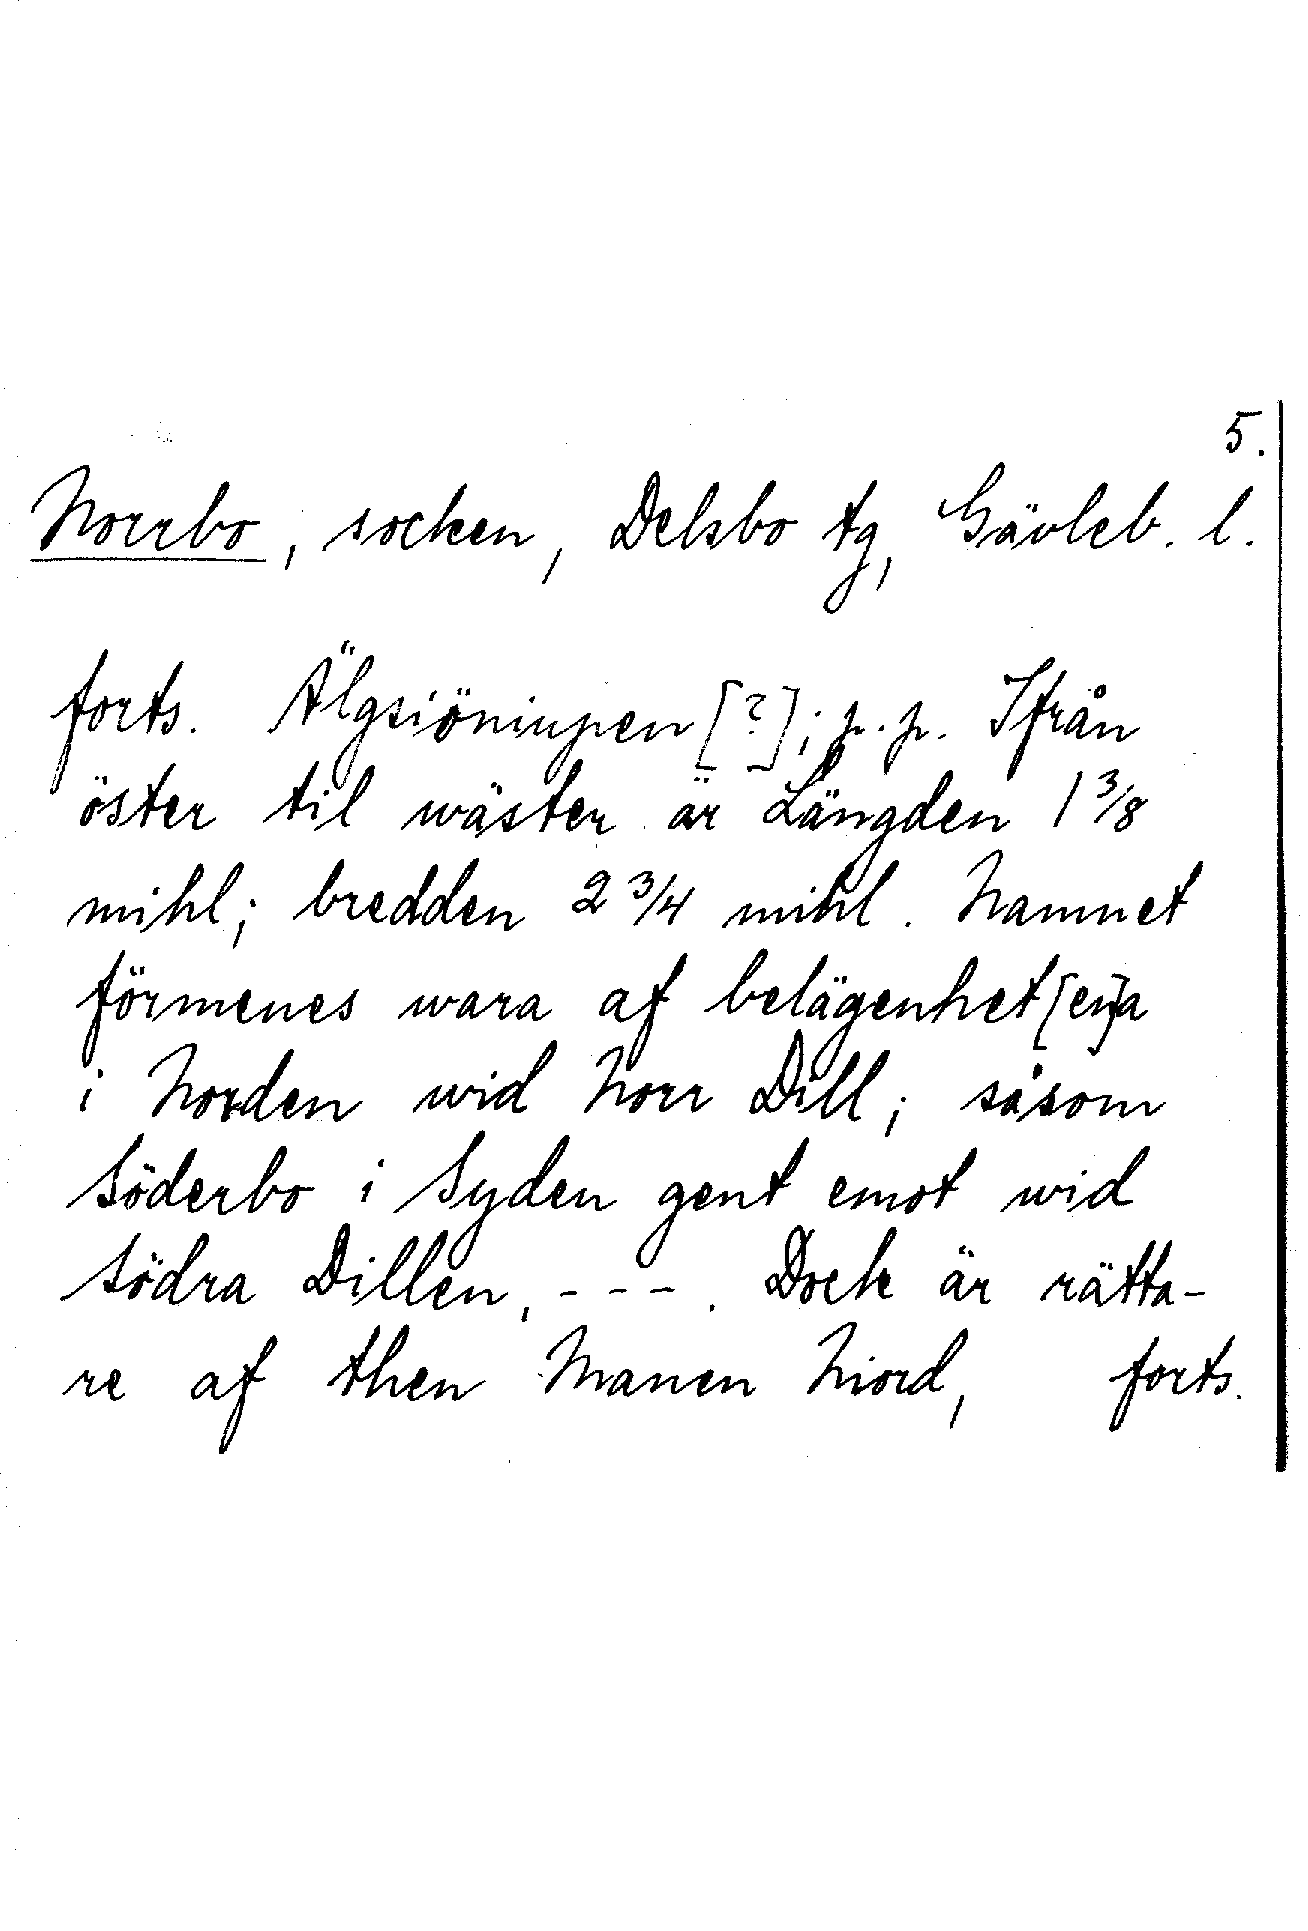 5.
Norrbo, socken, Delsbo tg, Gävleb. l.
forts. Älgsiöniupen [?]; p.p. Ifrån
öster til wäster är Längden 1 3/8
mihl; bredden 2 3/4 mihl. Namnet
förmenes wara af belägenhet[en]a
i Norden wid Norr Dill; såsom
Söderbo i Syden gent emot wid
Södra Dillen, - - - . Dock är rätta-
re af then Manen Niord, forts.